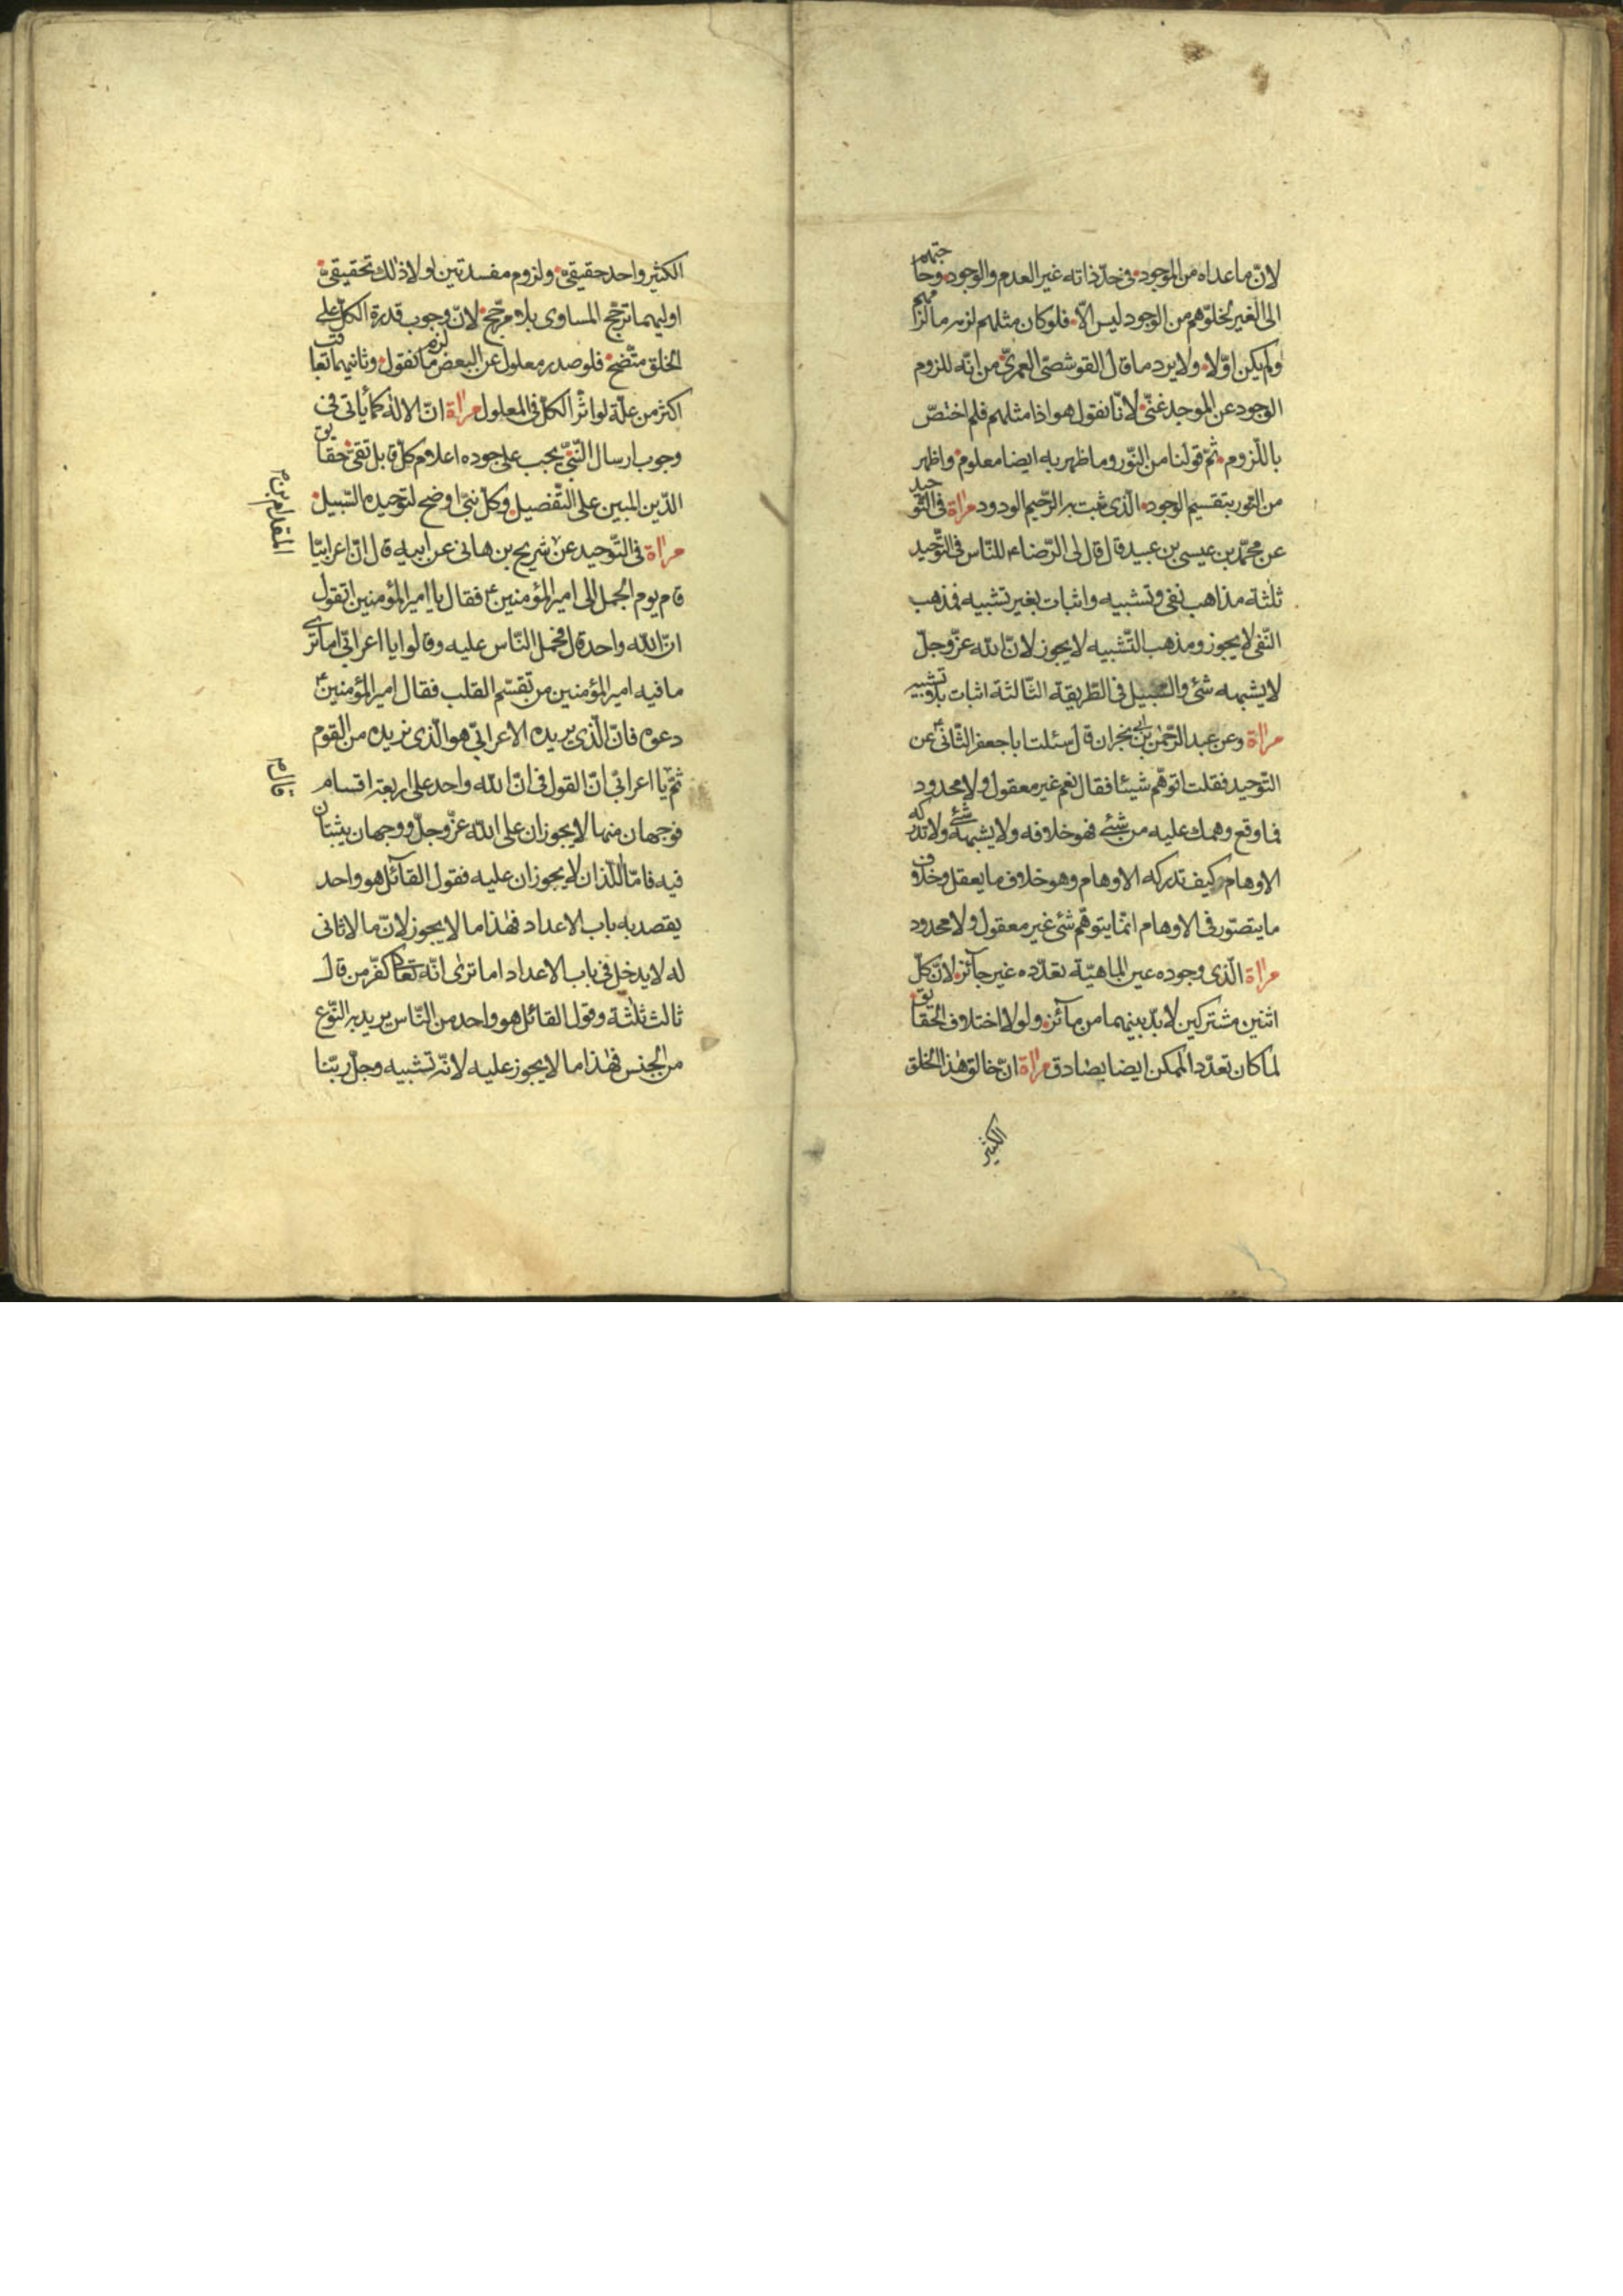 لانّ ما عداه من الموجود في حدّ ذاته غير العدم والوجود وحاجتهم
الى الغير لخلوّهم من الوجود ليس الّا فلو كان مثلهم لزمه ما لزمهم
ولم يكن اوّلا ولا يرد ما قال القوشصّى العمرىّ من انّه للزوم
الوجود عن الموجد غنىّ لأنّا نقول هو اذا مثلهم فلم اختصّ
باللّزوم ثمّ قولنا من النّور وما ظهر به ايضا معلوم واظهر
من النّور بتقسيم الوجود الّذى ثبت به الرّحيم الودود مراة فى التّوحيد
عن محمّد بن عيسى بن عبيد قال قال لى الرّضا ء للنّاس فى التّوحيد
ثلثة مذاهب نفى وتشبيه واثبات بغير تشبيه فمذهب
النّفى لا يجوز ومذهب التّشبيه لا يجوز لانّ الله عزّ وجلّ
لا يشبهه شئ والسّبيل فى الطّريقة الثّالثة اثبات بلا تشبيه
مراة وعن عبد الرّحمٰن بن ابى نجران قال سئلت ابا جعفر الثّانى ع عن
التّوحيد فقلت اتوهّم شيئا فقال نعم غير معقول ولا محدود
فما وقع وهمك عليه من شئ فهو خلافه ولا يشبهه شئ ولا تدركه
الاوهام كيف تدركه الاوهام وهو خلاف ما يعقل وخلاف
ما يتصوّر فى الاوهام انّما يتوهّم شئ غير معقول ولا محدود
مراة الّذى وجوده عين الماهيّة تعدّده غير جآئز لانّ كلّ
اثنين مشتركين لا بدّ بينهما من مآئز ولو لا اختلاف الحقايق
لما كان تعدّد الممكن ايضا يصادق مراة انّ خالق هذا الخلق
الكثير
الكثير واحد حقيقىّ ولزوم مفسدتين لولا ذلك تحقيقىّ
اوليهما ترجّح المساوى بلا مرجّح لانّ وجوب قدرة الكلّ على
الخلق متّضح فلو صدر معلول عن البعض لزم ما نقول وثانيهما تعاقب
اكثر من علّة لو اثّر الكلّ فى المعلول مراة انّ الاله كما يأتى فى
وجوب ارسال النّبىّ يجب على جوده اعلام كلّ قابل تقىّ حقايق
الدّين المبين على التّفصيل وكلّ نبىّ اوضح لتوحيده السّبيل
مراة فى التّوحيد عن شريح بن هانى عن ابيه قال انّ اعرابيّا
المقدام بن م
قام يوم الجمل الى امير المؤمنين ع فقال يا امير المؤمنين اتقول
انّ الله واحد قال فحمل النّاس عليه وقالوا يا اعرابىّ اما ترى
ما فيه امير المؤمنين من تقسّم القلب فقال امير المؤمنين ع
دعوه فانّ الّذى يريده الاعرابىّ هو الّذى نريده من القوم
ثمّ يا اعرابىّ انّ القول فى انّ الله واحد على اربعة اقسام
قال م
فوجهان منها لا يجوزان على الله عزّ وجلّ ووجهان يثبتان
فيه فامّا اللّذان لا يجوزان عليه فقول القآئل هو واحد
يقصد به باب الاعداد فهذا ما لا يجوز لانّ ما لا ثانى
له لا يدخل فى باب الاعداد اما ترى انّه تعالى كفّر من قال
ثالث ثلثة وقول القائل هو واحد من النّاس يريد به النّوع
من الجنس فهذا ما لا يجوز عليه لانّه تشبيه وجلّ ربّنا